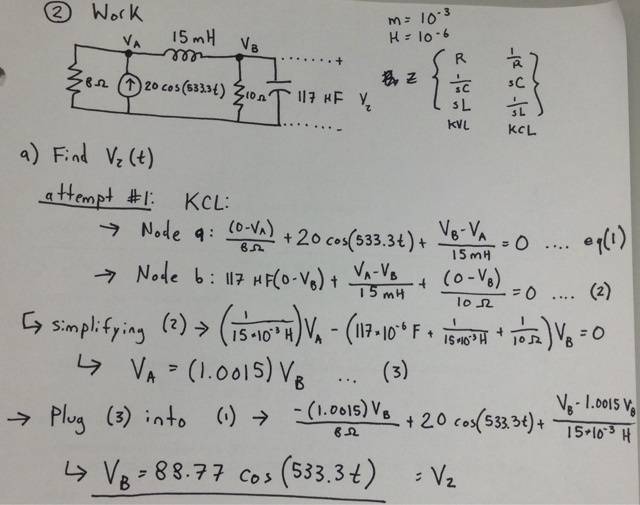 ② Work
m = 10^-3
μ = 10^-6
V_A 15 mH V_B
8Ω 20 cos(533.3t) 10Ω 117 μF V_2
+
-
Z { R 1/R }
{ 1/sC sC }
{ sL 1/sL }
KVL KCL
a) Find V_2(t)
attempt #1: KCL:
→ Node a: (0-V_A)/8Ω + 20 cos(533.3t) + (V_B-V_A)/15mH = 0 .... eq(1)
→ Node b: 117 μF(0-V_B) + (V_A-V_B)/15mH + (0-V_B)/10Ω = 0 .... (2)
↳ simplifying (2) → (1/(15*10^-3 H))V_A - (117*10^-6 F + 1/(15*10^-3 H) + 1/10Ω)V_B = 0
↳ V_A = (1.0015) V_B ... (3)
→ Plug (3) into (1) → -(1.0015)V_B/8Ω + 20 cos(533.3t) + (V_B - 1.0015 V_B)/(15*10^-3 H)
↳ V_B = 88.77 cos(533.3t) = V_2